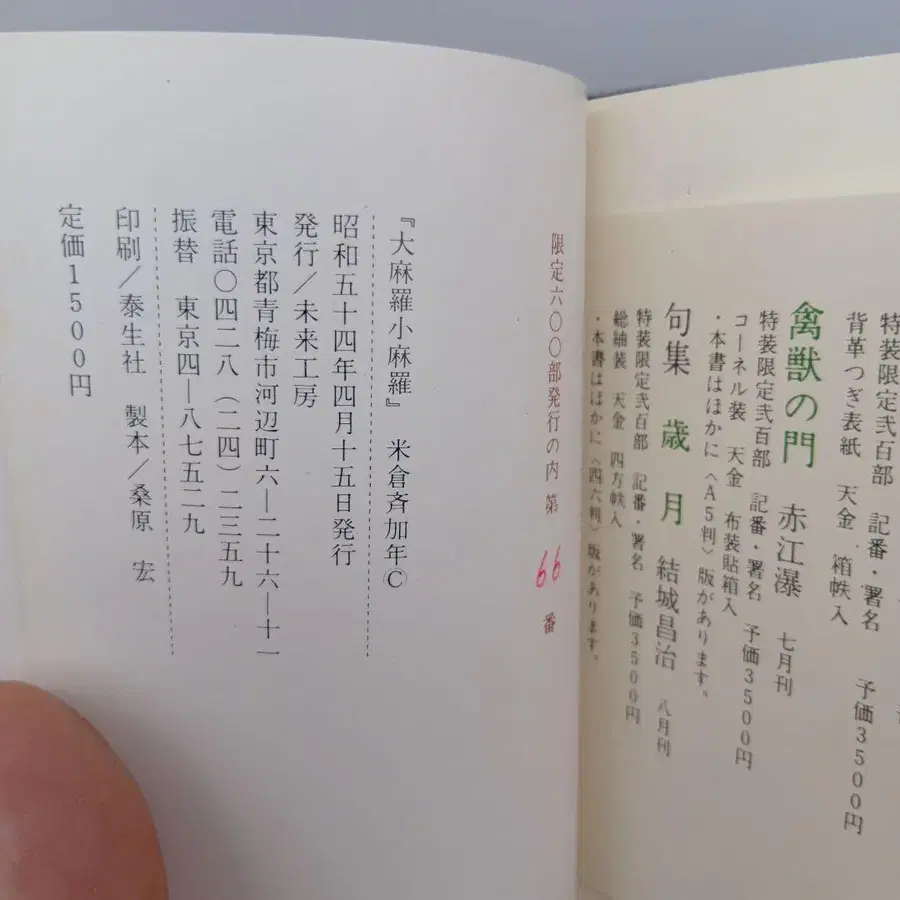 特装限定弐百部 記番・署名
背革つぎ表紙 天金 箱帙入 予価3500円
禽獣の門 赤江瀑 七月刊
特装限定弐百部 記番・署名 予価3500円
コーネル装 天金 布装貼箱入
・本書はほかに〈A5判〉版があります。
句集 歳月 結城昌治 八月刊
特装限定弐百部 記番・署名 予価3500円
総紬装 天金 四方帙入
・本書はほかに〈四六判〉版があります。
限定六〇〇部発行の内第 66 番
『大麻羅小麻羅』 米倉斉加年©
昭和五十四年四月十五日発行
発行/未来工房
東京都青梅市河辺町六―二十六―十一
電話〇四二八(二四)二三五九
振替 東京四―八七五二九
印刷/泰生社 製本/桑原 宏
定価1500円